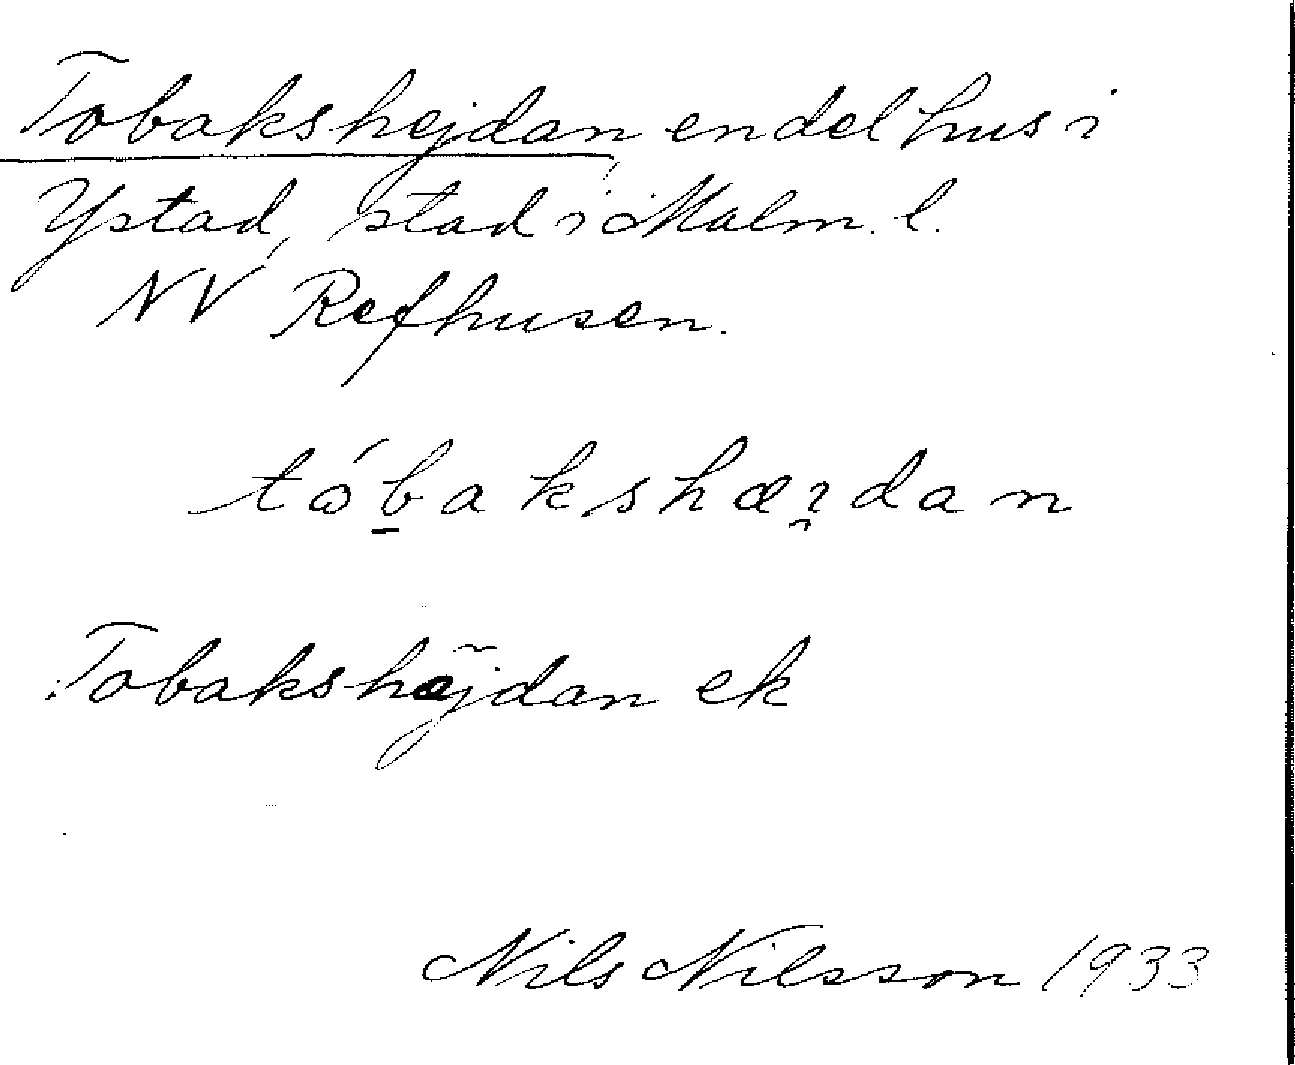 Tobakshejdan, en del hus i
Ystad, stad i Malm. l.
NV Refhusen.
tóbakshæı̯dan
Tobakshöjdan ek
Nils Nilsson 1933